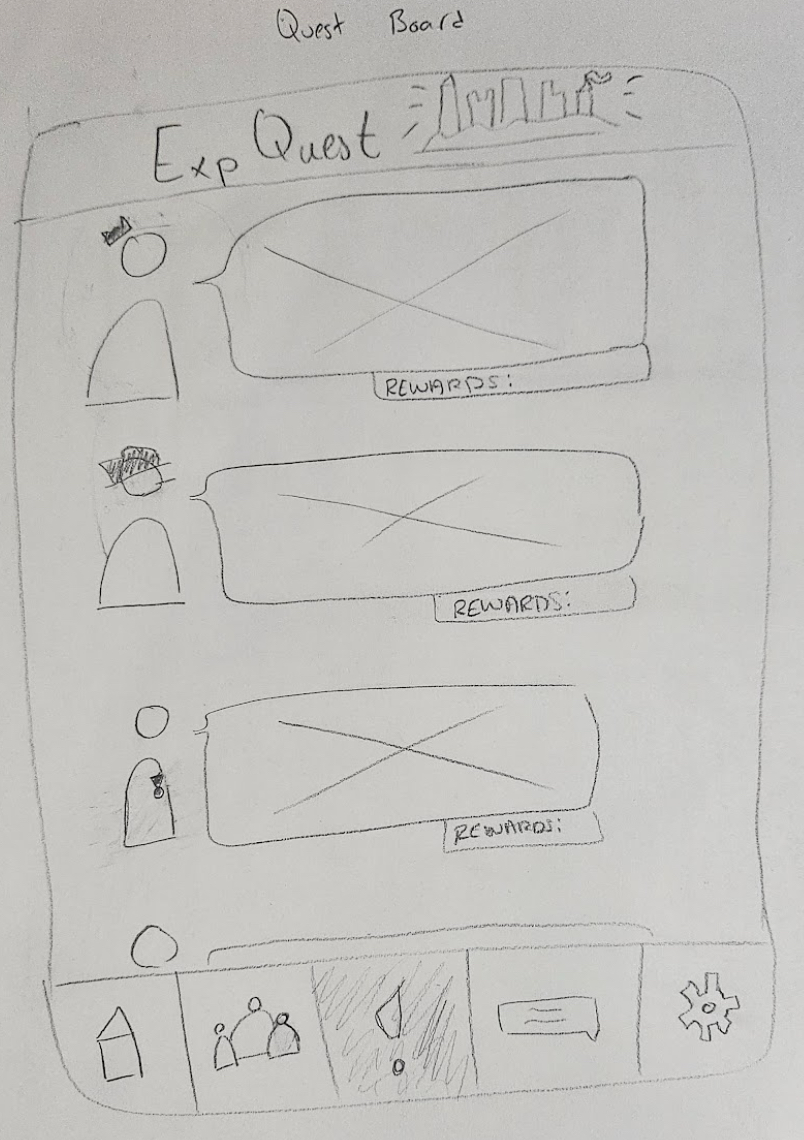 Quest Board
Exp Quest
REWARDS:
REWARDS:
REWARDS: